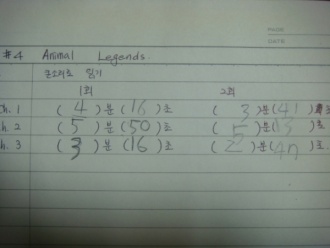 PAGE
DATE
#4 Animal Legends.
큰소리로 읽기
1회 2회
Ch. 1 ( 4 ) 분 ( 16 ) 초 ( 3 ) 분 ( 41 ) 초
Ch. 2 ( 5 ) 분 ( 50 ) 초 ( 5 ) 분 ( 13 ) 초
Ch. 3 ( 3 ) 분 ( 16 ) 초 ( 2 ) 분 ( ) 초